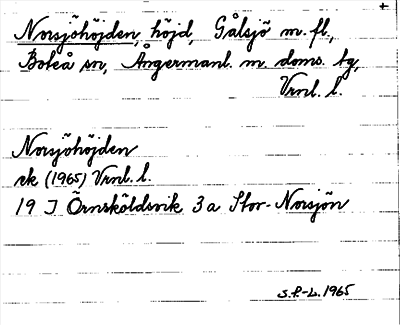 Norsjöhöjden, höjd, Gålsjö m. fl.,
Boteå sn, Ångermanl. m. doms. lg,
Vrnl. l.
Norsjöhöjden
ek (1965) Vrnl. l.
19 J Örnsköldsvik 3a Stor-Norsjön
S.P.-L. 1965